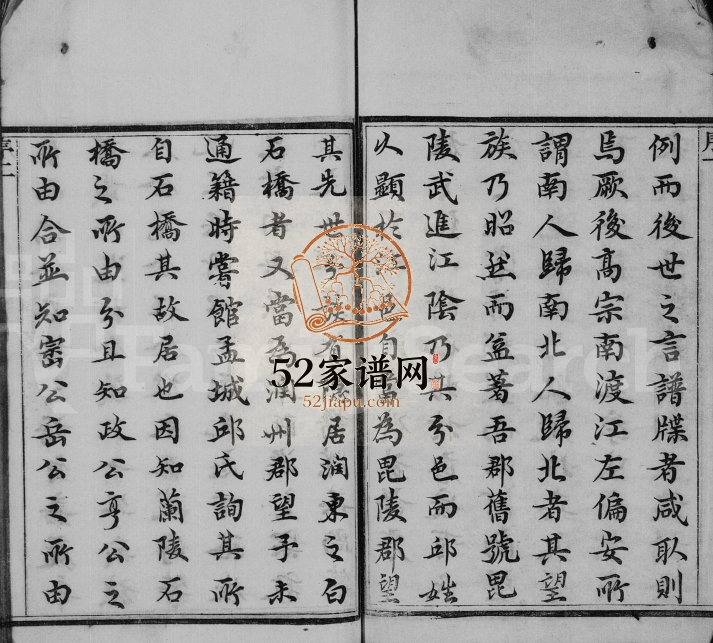 例而後世之言譜牒者咸取則
焉厥後高宗南渡江左偏安所
謂南人歸南北人歸北者其望
族乃昭然而益著吾郡舊號毘
陵武進江陰乃其分邑而邱姓
以顯於邑自為毘陵郡望
其先世有居润東之白
石橋者又當為润州郡望予未
通籍時嘗館孟城邱氏詢其所
自石橋其故居也因知蘭陵石
橋之所由分且知政公亨公之
所由合並知密公岳公之所由
序二
52家谱网
52jiapu.com
FamilySearch